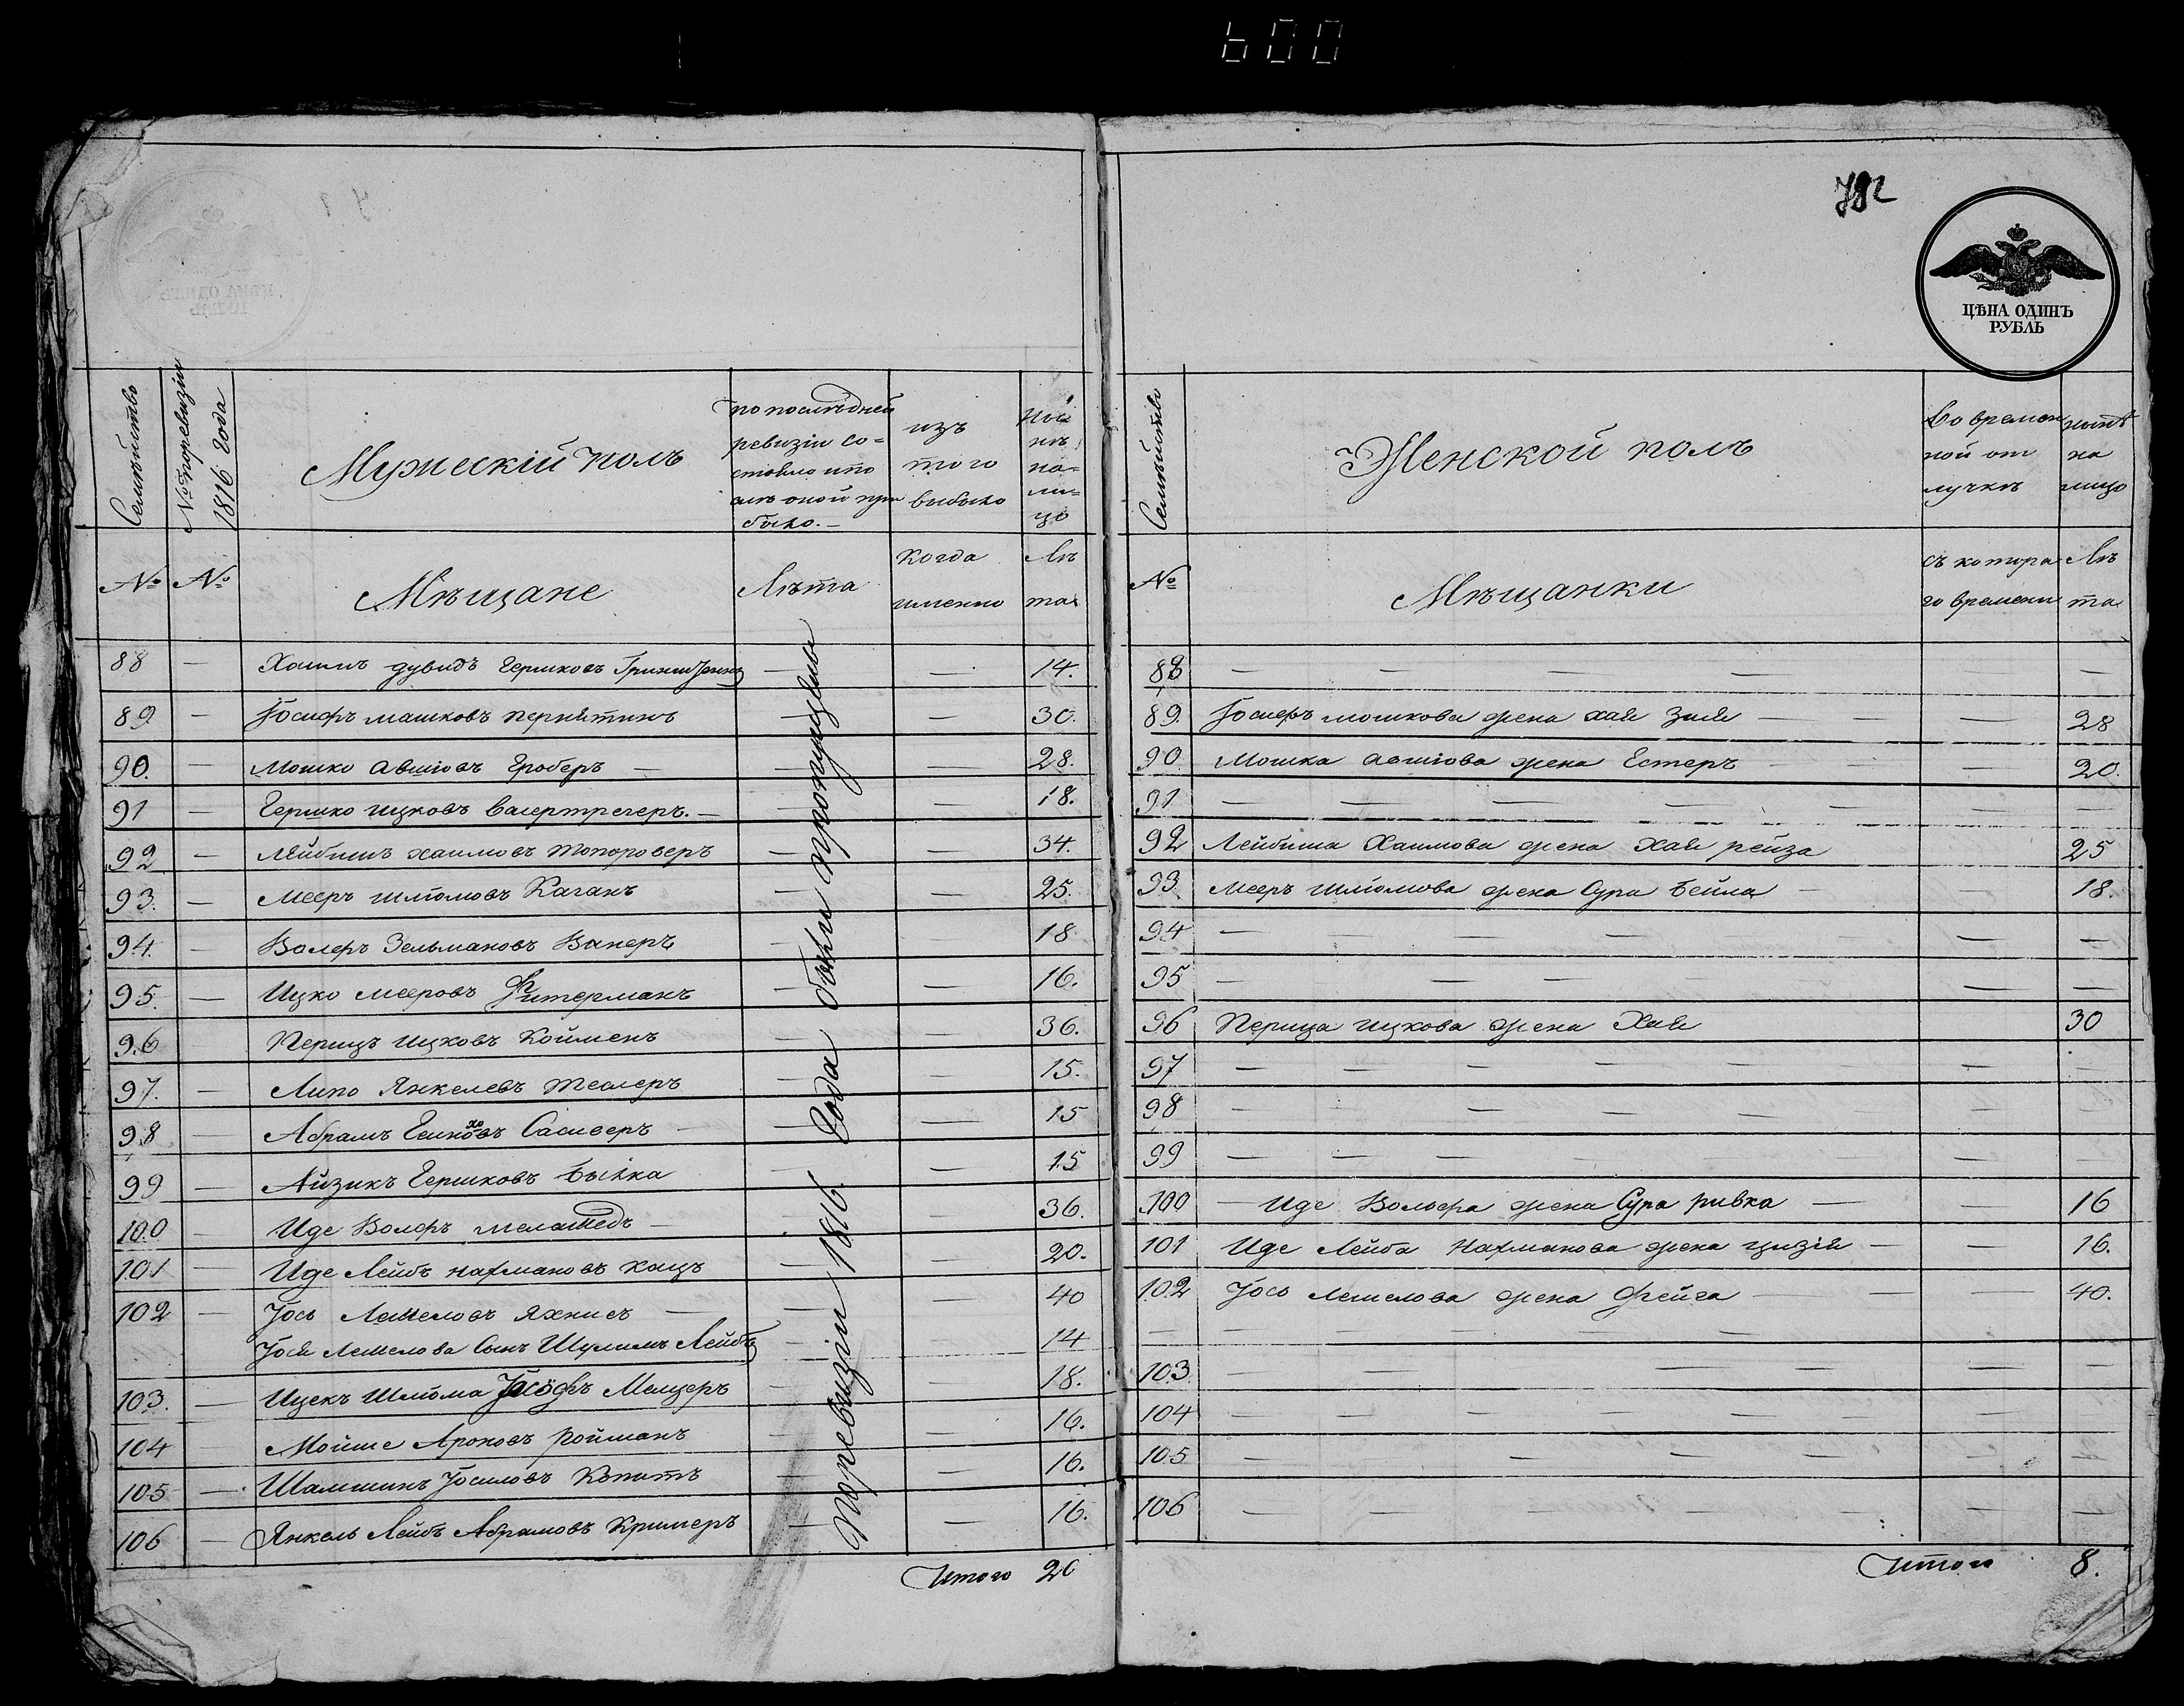 600
782
ЦѢНА ОДИНЪ
РУБЛЬ
Семѣйство
№ поревизіи
1816 года
Мужескій полъ
по последней
ревизіи со-
стояло и по
слѣ оной при
было.—
изъ
того
выбыло
ны
нѣ
на-
ли-
цо
№ №
Мѣщане
Лѣта
когда
именно
Лѣ
та
88 — Хаимъ дувидъ Гершковъ — — 14.
89. — Іосифъ машковъ пернятинъ — — 30.
90. — Мошко Авшіовъ Гроберъ — — — 28.
91 — Гершко ицковъ Васертрегеръ. — — — 18.
92 — Лейбишъ хаимовъ топороверъ — — 34.
93. — Мееръ шліомовъ Каганъ — — 25.
94. — Волфъ Зельмановъ Винеръ — — 18
95. — Ицко мееровъ Фитерманъ — — 16.
96 — Перицъ ицковъ Койменъ — — 36.
97. — Липо Янкелевъ теслеръ — — 15.
98 — Абрамъ Сасиверъ — — — 15
99 — Айзикъ Гершковъ Быпка — — 15
100 — Иде Волфъ меламедъ — — — 36.
101 — Иде Лейбъ нахмановъ кацъ — — 20.
102 — Іось Лемеловъ Яхнисъ — — — 40
Іося Лемелова Сынъ Шулимъ Лейбъ — — 14
103. — Ицекъ Шліома Іосіофъ Мелцеръ — — 18.
104 — Мойше Ароновъ Ройманъ — — 16.
105 — Шамшинъ Іосиловъ Копитъ — — 16.
106 — Янкель Лейбъ Абрамовъ Кримеръ — — 16.
Поревизіи 1816 года были пропущены
Итого 20
Семѣйство
Женской полъ
Во времен
ной от
лучкѣ
нынѣ
на
лицо
№
Мѣщанки
съ котора
го времени
Лѣ
та
88 — — — — — —
89. Іосифъ мошкова жена хая зися — — 28
90 Мошка авшіова жена Естеръ — — 20.
91 — — — — — — —
92 Лейбиша Хаимова жена Хая рейза 25
93 Мееръ шліомова жена Сура бейла — — 18.
94 — — — — — —
95 — — — — — —
96 Перица ицкова жена Хая 30
97 — — — — — — —
98 — — — — — —
99 — — — — — — —
100 — Иде Вольфа жена Сура ривка — — 16
101 Иде Лейба Нахманова жена цизія — — 16.
102 Іось Лемелова жена Фейга — — — 40.
— — — — — — —
103 — — — — — —
104 — — — — — — —
105 — — — — — —
106 — — — — — — —
Итого 8.